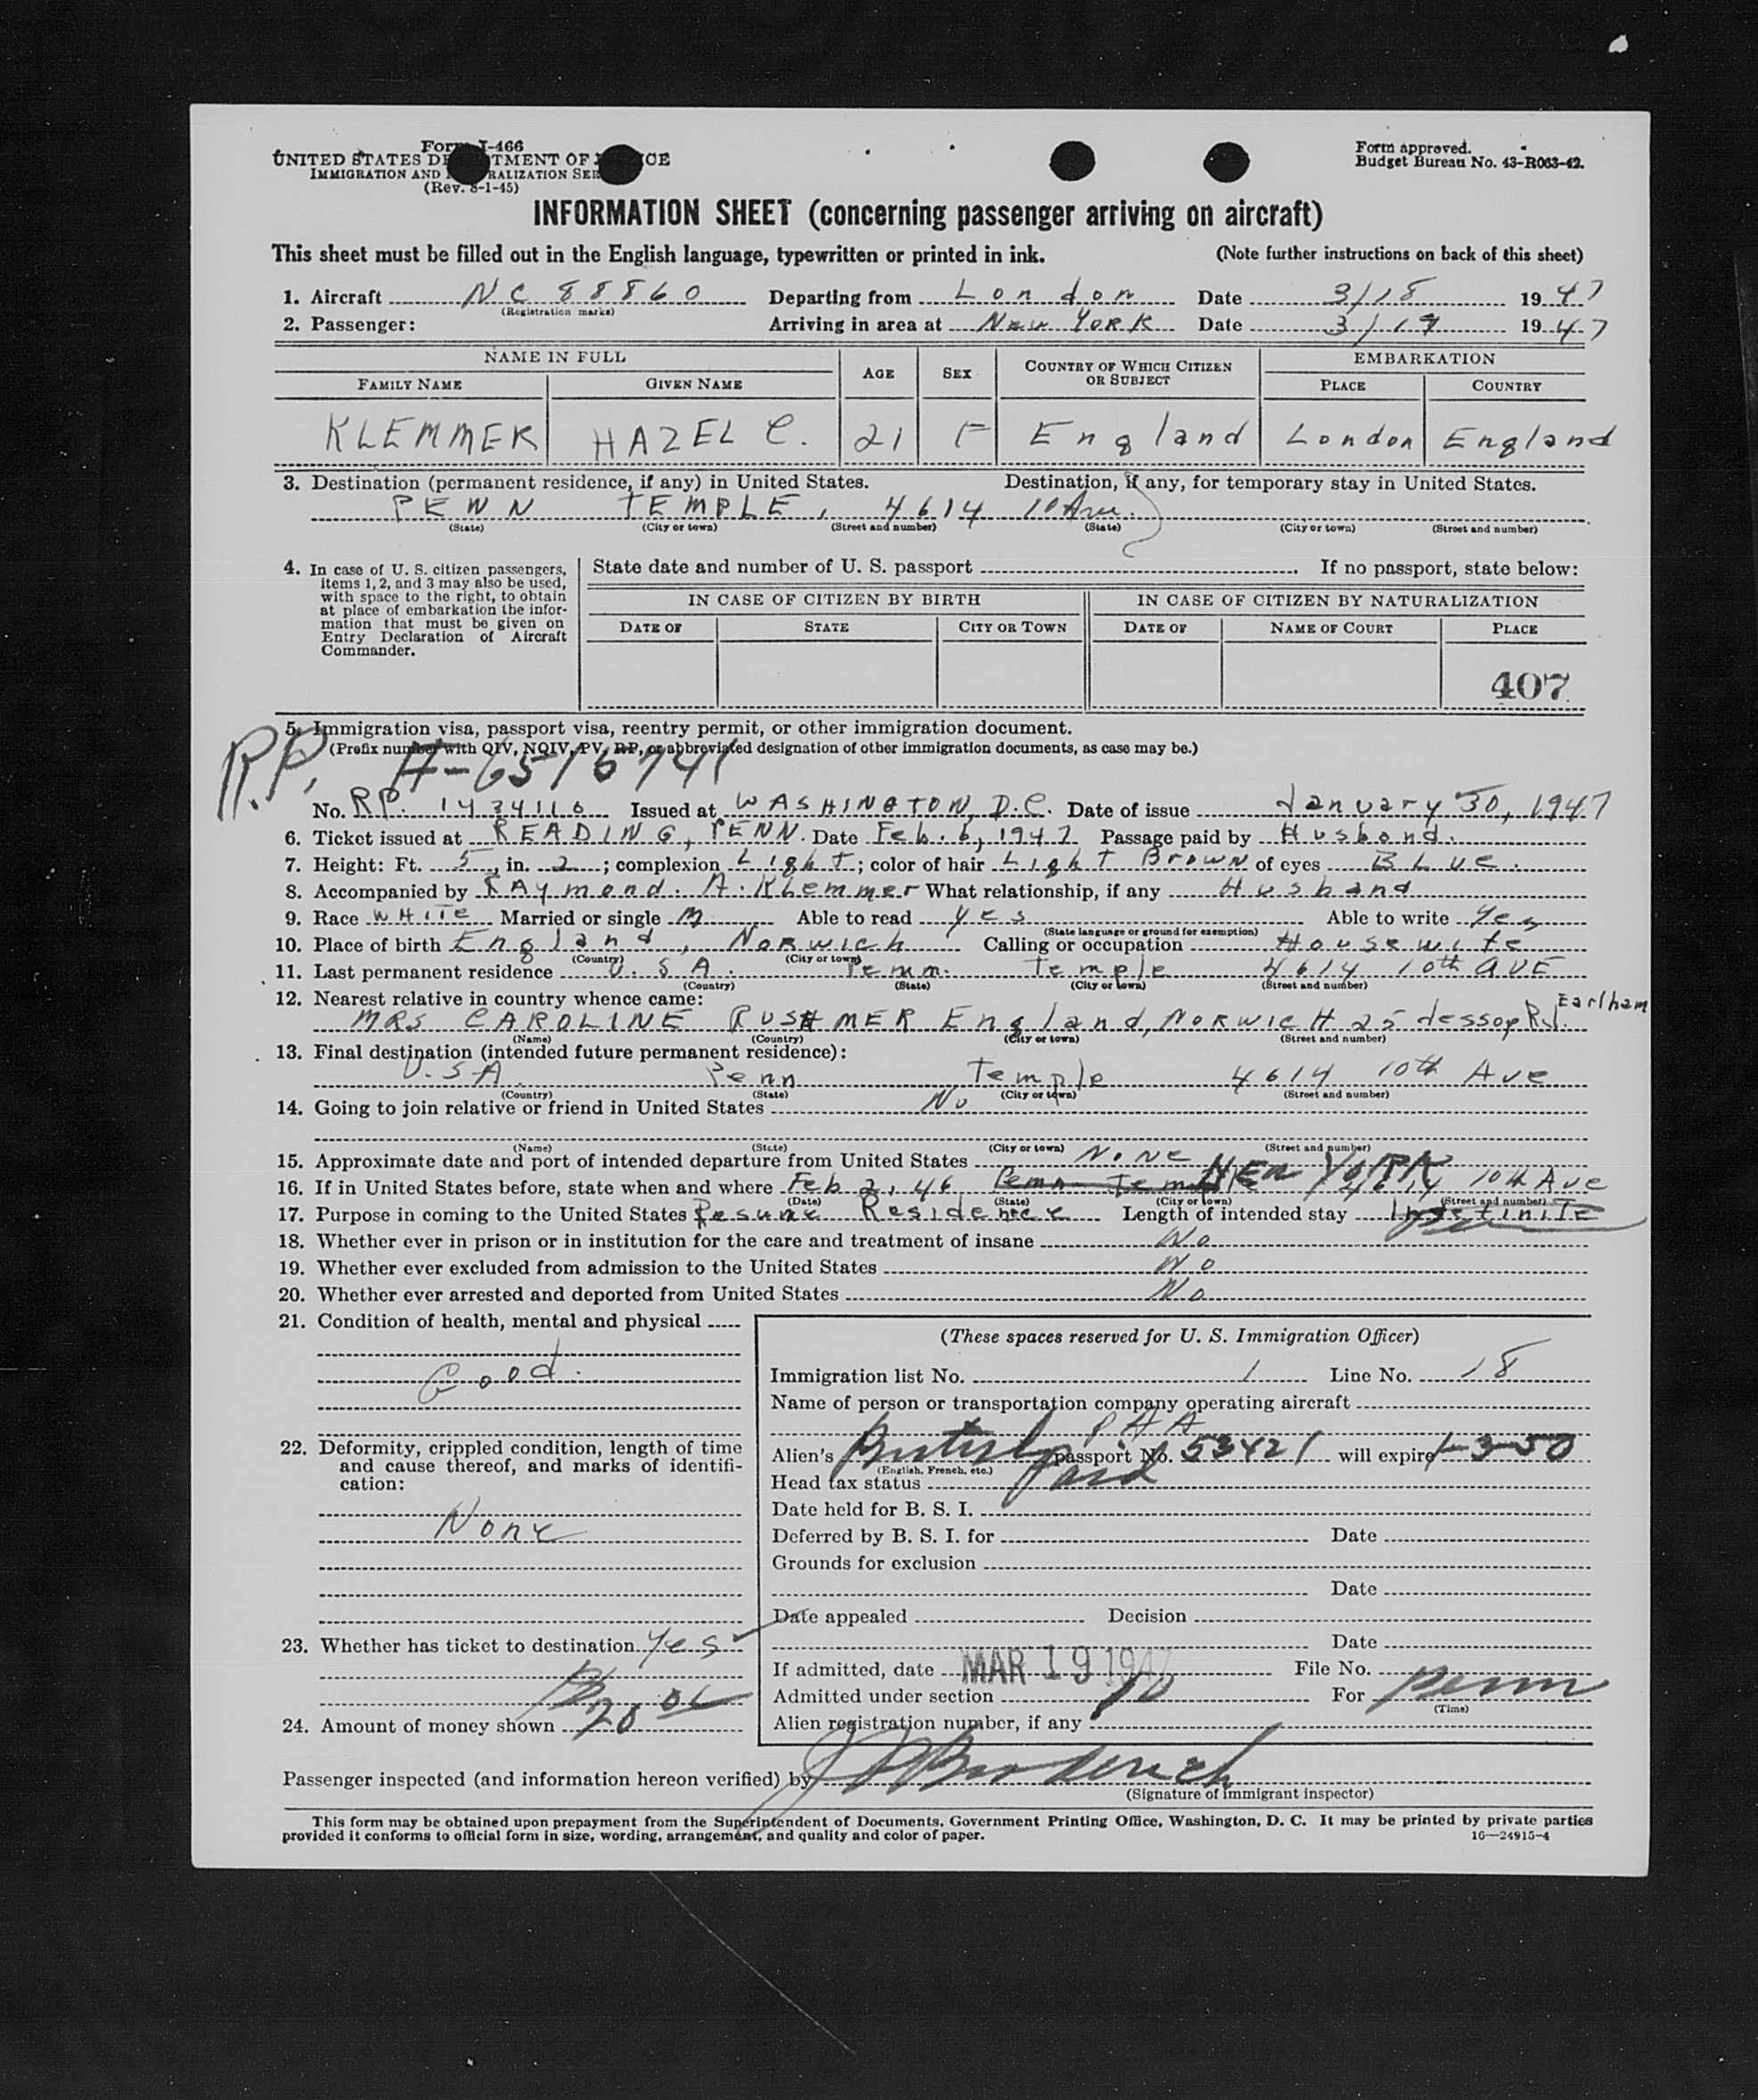 Form I-466
UNITED STATES DE TMENT OF CE
IMMIGRATION AND RALIZATION SER
(Rev. 8-1-45)
Form approved.
Budget Bureau No. 43-R063-42.
INFORMATION SHEET (concerning passenger arriving on aircraft)
This sheet must be filled out in the English language, typewritten or printed in ink. (Note further instructions on back of this sheet)
1. Aircraft NC 88860 Departing from London Date 3/18 1947
(Registration marks)
2. Passenger: Arriving in area at New York Date 3/19 1947
NAME IN FULL AGE SEX COUNTRY OF WHICH CITIZEN OR SUBJECT EMBARKATION
FAMILY NAME GIVEN NAME PLACE COUNTRY
KLEMMER HAZEL C. 21 F England London England
3. Destination (permanent residence, if any) in United States. Destination, if any, for temporary stay in United States.
PENN TEMPLE, 4614 10 Ave.
(State) (City or town) (Street and number) (State) (City or town) (Street and number)
4. In case of U. S. citizen passengers, items 1, 2, and 3 may also be used, with space to the right, to obtain at place of embarkation the information that must be given on Entry Declaration of Aircraft Commander.
State date and number of U. S. passport If no passport, state below:
IN CASE OF CITIZEN BY BIRTH IN CASE OF CITIZEN BY NATURALIZATION
DATE OF STATE CITY OR TOWN DATE OF NAME OF COURT PLACE
407
5. Immigration visa, passport visa, reentry permit, or other immigration document.
(Prefix number with QIV, NQIV, PV, RP, or abbreviated designation of other immigration documents, as case may be.)
R.P. A-6515741
No. RP. 1434116 Issued at WASHINGTON, D.C. Date of issue January 30, 1947
6. Ticket issued at READING, PENN. Date Feb. 6, 1947 Passage paid by Husband.
7. Height: Ft. 5, in. 2; complexion Light; color of hair Light Brown of eyes BLUE.
8. Accompanied by RAymond. A. KLemmer What relationship, if any Husband
9. Race WHITE Married or single M Able to read yes Able to write Yes
(State language or ground for exemption)
10. Place of birth England, Norwich Calling or occupation Housewife
(Country) (City or town)
11. Last permanent residence U.S.A. Penn. Temple 4614 10th AVE
(Country) (State) (City or town) (Street and number)
12. Nearest relative in country whence came:
MRS CAROLINE RUSHMER England, NORWICH 25 Jessop Rd. Earlham
(Name) (Country) (City or town) (Street and number)
13. Final destination (intended future permanent residence):
U.S.A. Penn Temple 4614 10th Ave
(Country) (State) (City or town) (Street and number)
14. Going to join relative or friend in United States No
(Name) (State) (City or town) (Street and number)
15. Approximate date and port of intended departure from United States None
16. If in United States before, state when and where Feb 2, 46 Penn Temple NEW YORK 4614 10th Ave
(Date) (State) (City or town) (Street and number)
17. Purpose in coming to the United States Resume Residence Length of intended stay Indefinite
18. Whether ever in prison or in institution for the care and treatment of insane No
19. Whether ever excluded from admission to the United States No
20. Whether ever arrested and deported from United States No
21. Condition of health, mental and physical
Good.
22. Deformity, crippled condition, length of time and cause thereof, and marks of identification:
None
23. Whether has ticket to destination Yes
24. Amount of money shown $20 00
(These spaces reserved for U. S. Immigration Officer)
Immigration list No. 1 Line No. 18
Name of person or transportation company operating aircraft
PAA
Alien's British passport No. 53421 will expire 1-3-50
(English, French, etc.)
Head tax status paid
Date held for B. S. I.
Deferred by B. S. I. for Date
Grounds for exclusion
Date
Date appealed Decision
Date
If admitted, date MAR 19 1947 File No.
Admitted under section For Perm
(Time)
Alien registration number, if any
Passenger inspected (and information hereon verified) by
(Signature of immigrant inspector)
This form may be obtained upon prepayment from the Superintendent of Documents, Government Printing Office, Washington, D. C. It may be printed by private parties
provided it conforms to official form in size, wording, arrangement, and quality and color of paper. 16—24915-4